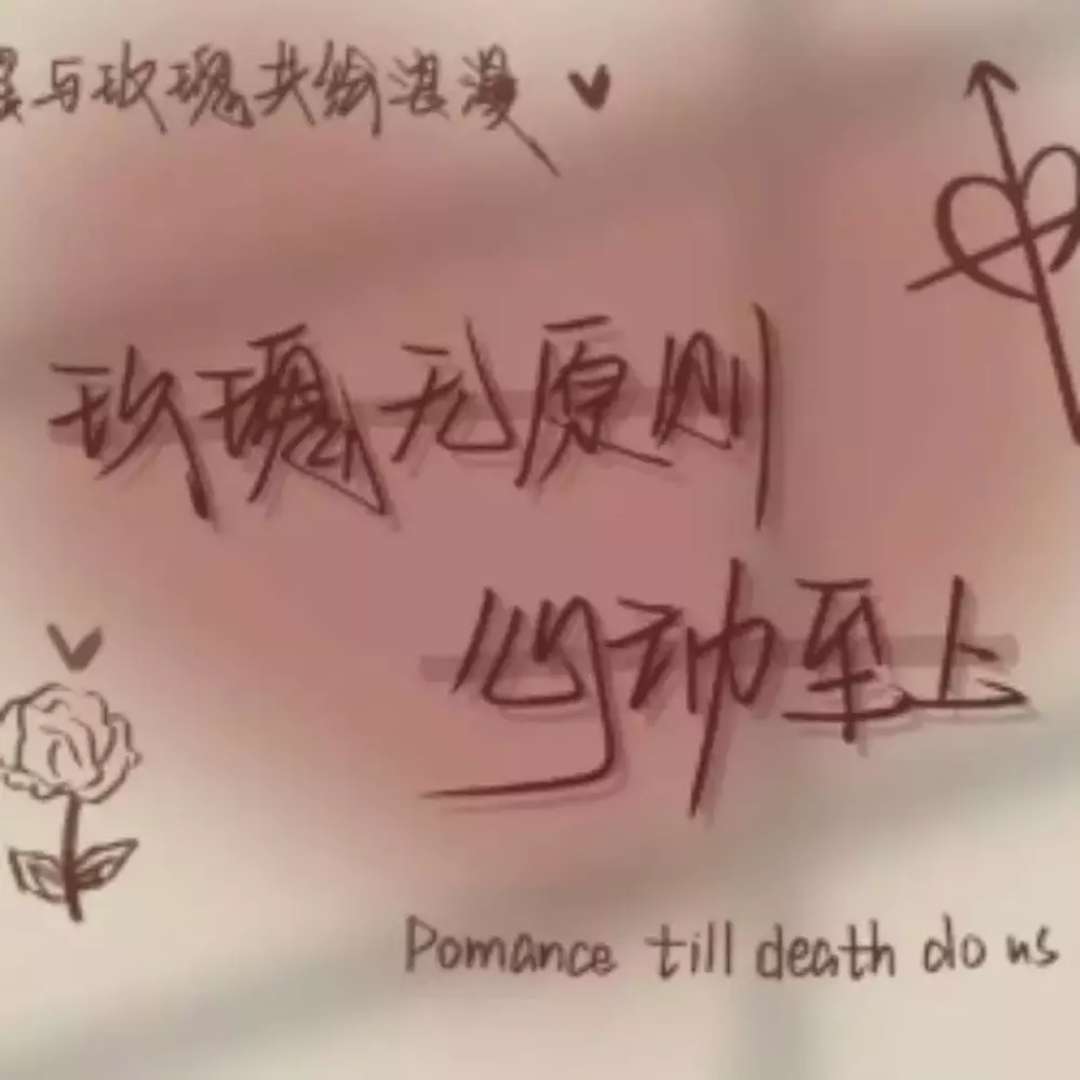 与玫瑰共繪浪漫
玫瑰无原则
心动至上
Pomance till death do us